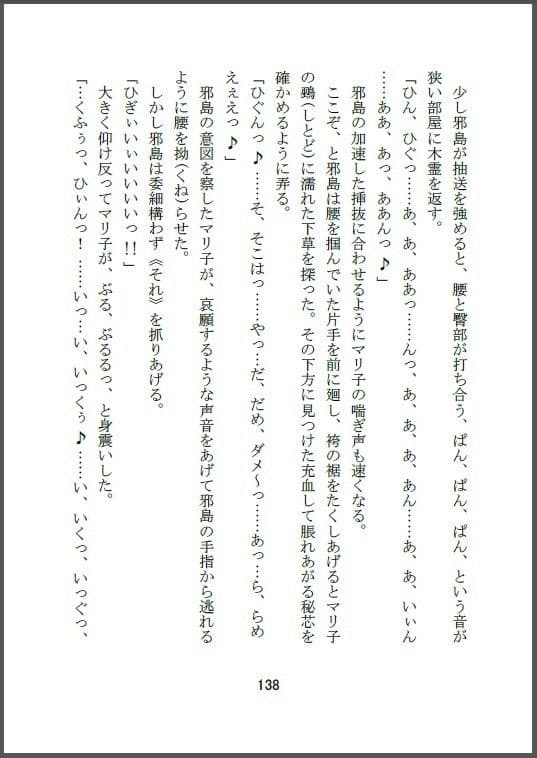 少し邪島が抽送を強めると、腰と臀部が打ち合う、ぱん、ぱん、ぱん、という音が
狭い部屋に木霊を返す。
「ひん、ひぐっ……あ、あ、ああっ……んっ、あ、あ、あ、あん……あ、あ、いぃん
……ああ、あっ、ああんっ♪」
邪島の加速した挿抜に合わせるようにマリ子の喘ぎ声も速くなる。
ここぞ、と邪島は腰を掴んでいた片手を前に廻し、袴の裾をたくしあげるとマリ子
の鵐(しとど)に濡れた下草を探った。その下方に見つけた充血して腫れあがる秘芯を
確かめるように弄る。
「ひぐんっ♪……そ、そこはっ……やっ…だ、だめ、ダメ～っ……あっ…ら、らめ
えぇえっ♪」
邪島の意図を察したマリ子が、哀願するような声音をあげて邪島の手指から逃れる
ように腰を拗(くね)らせた。
しかし邪島は委細構わず《それ》を抓りあげる。
「ひぎぃいぃいいいいっ!!」
大きく仰け反ってマリ子が、ぶる、ぶるるっ、と身震いした。
「…くふぅっ、ひぃんっ！……いっ…い、いっくぅ♪……い、いくっ、いっぐっ、
138